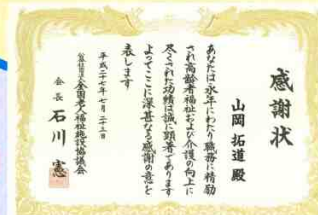 感謝状
山岡拓道 殿
あなたは永年にわたり職務に精励
され高齢者福祉および介護の向上に
尽くされた功績は誠に顕著であります
よってここに深甚なる感謝の意を
表します
平成二十七年七月二十三日
公益社団法人全国老人福祉施設協議会
会長 石川 憲